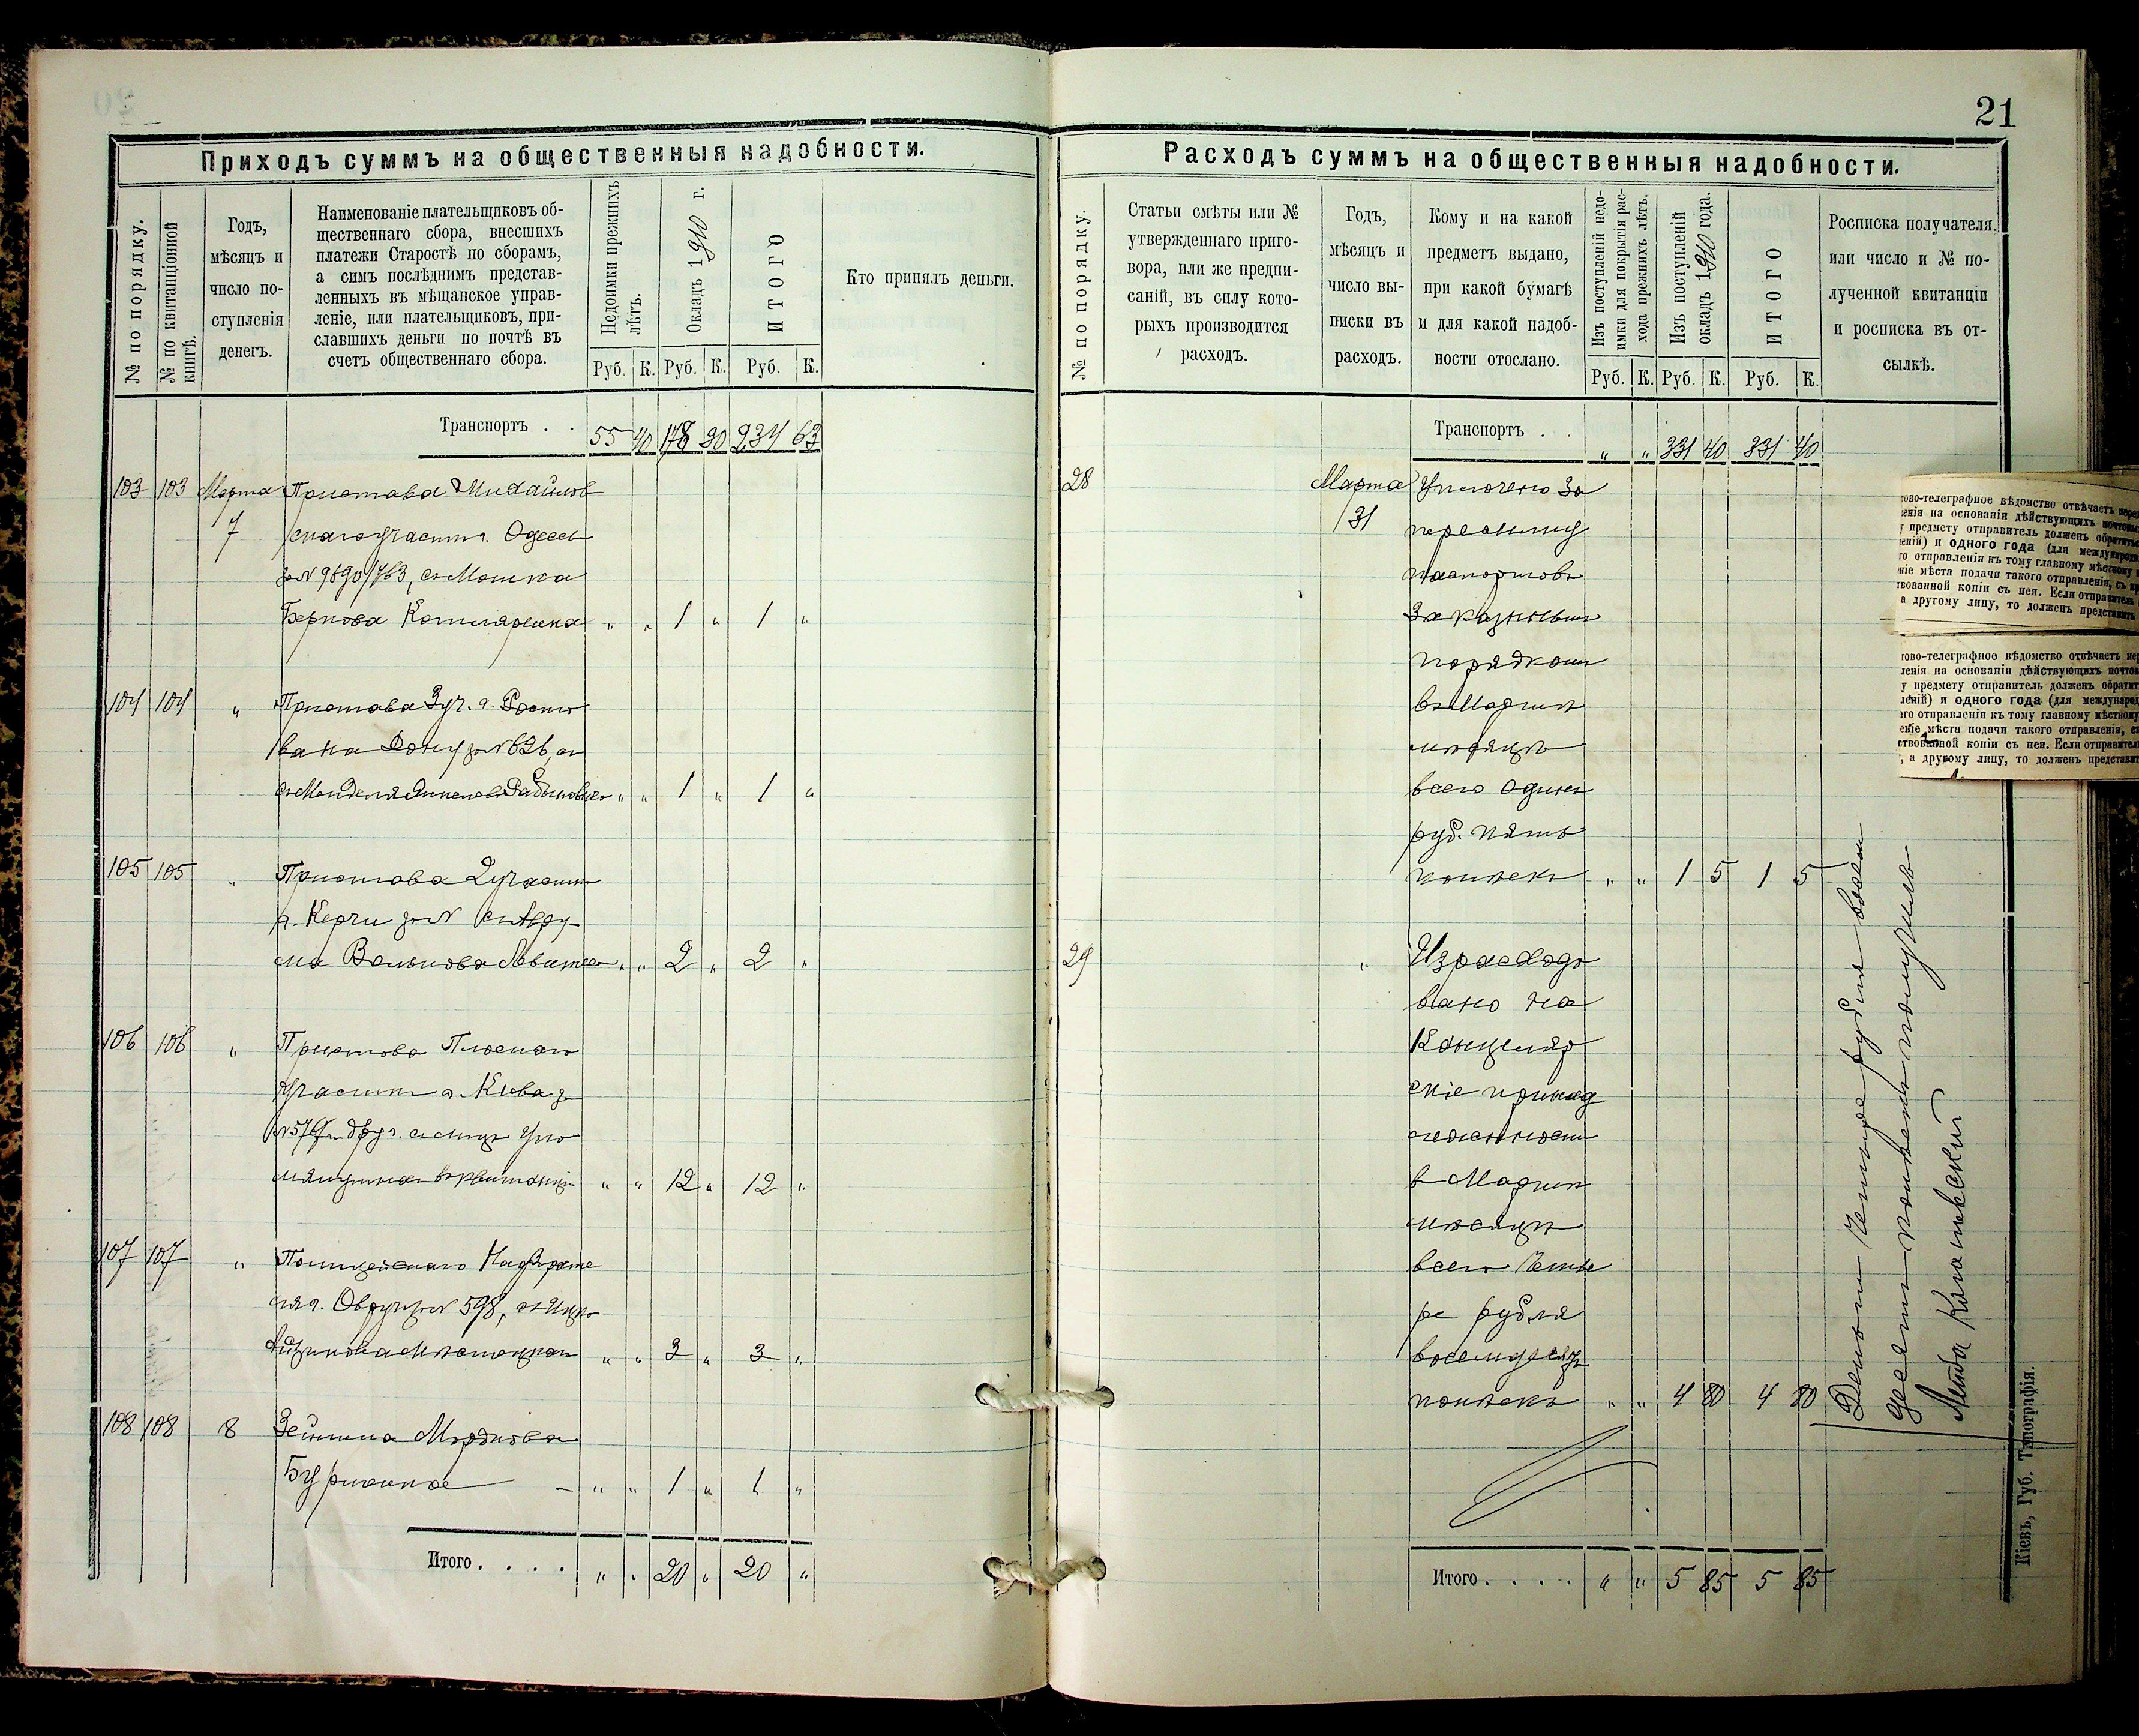 21
Приходъ суммъ на общественныя надобности.
№ по порядку.
№ по квитанціонной книгѣ.
Годъ,
мѣсяцъ и
число по-
ступленія
денегъ.
Наименованіе плательщиковъ об-
щественнаго сбора, внесшихъ
платежи Старостѣ по сборамъ,
а симъ послѣднимъ представ-
ленныхъ въ мѣщанское управ-
леніе, или плательщиковъ, при-
славшихъ деньги по почтѣ въ
счетъ общественнаго сбора.
Недоимки прежнихъ
лѣтъ.
Окладъ 1910 г.
ИТОГО
Руб. К. Руб. К. Руб. К.
Кто принялъ деньги.
Транспортъ . . 55 40 178 234 63
103 103 Марта Пристава Михайлов
7 скаго участк г. Одессы
за № 9890/763, съ Мошка
Беркова " " 1 " 1 "
104 104 " Пристава 3 уч. г. Росто
ва на Дону за № 626,
съ Менделя " " 1 " 1 "
105 105 " Пристава 2 участк
г. Керчи за № съ Авру-
ма Волькова " " 2 " 2 "
106 106 " Пристава Плоскаго
участк г. Кіева за
№ и друг. съ лицъ упо
мянутыхъ въ квитанціи " " 12 " 12 "
107 107 " Полицейскаго Надзирате
ля г. Овруч за № 598, съ Ицко
" " 3 " 3 "
108 108 8 Мордкова
" " 1 " 1 "
Итого. . . . " " 20 " 20 "
Расходъ суммъ на общественныя надобности.
№ по порядку.
Статьи смѣты или №
утвержденнаго приго-
вора, или же предпи-
саній, въ силу кото-
рыхъ производится
расходъ.
Годъ,
мѣсяцъ и
число вы-
писки въ
расходъ.
Кому и на какой
предметъ выдано,
при какой бумагѣ
и для какой надоб-
ности отослано.
Изъ поступленій недо-
имки для покрытія рас-
хода прежнихъ лѣтъ.
Изъ поступленій
окладъ 1910 года.
ИТОГО
Руб. К. Руб. К. Руб. К.
Росписка получателя.
или число и № по-
лученной квитанціи
и росписка въ от-
сылкѣ.
Транспортъ . . " " 331 40 331 40
28 Марта Уплочено за
31 пересылку
паспортовъ
заказнымъ
порядкомъ
въ Мартѣ
мѣсяцѣ
всего одинъ
руб. пять
копѣекъ " " 1 5 1 5
29 " Израсходо
вано на
Канцеляр
скіе принад
лежности
в Мартѣ
мѣсяцѣ
всего Четы
ре рубля
восемдесятъ
копѣекъ " " 4 80 4 80
Деньги Четыре рубля восем
десятъ копѣекъ получилъ
Лейба
Итого. . . . " " 5 85 5 85
Кіевъ, Губ. Типографія.
ово-телеграфное вѣдомство отвѣчаетъ
енія на основаніи дѣйствующихъ
у предмету отправитель долженъ обратиться
леній) и одного года (для
го отправленія къ тому главному мѣстному
ніе мѣста подачи такого отправленія, съ
твованной копіи съ нея. Если отправитель
а другому лицу, то долженъ представить
ово-телеграфное вѣдомство отвѣчаетъ
ленія на основаніи дѣйствующихъ
у предмету отправитель долженъ
леній) и одного года (для
аго отправленія къ тому главному мѣстному
еніе мѣста подачи такого отправленія,
ствованной копіи съ нея. Если отправитель
, а другому лицу, то долженъ представить